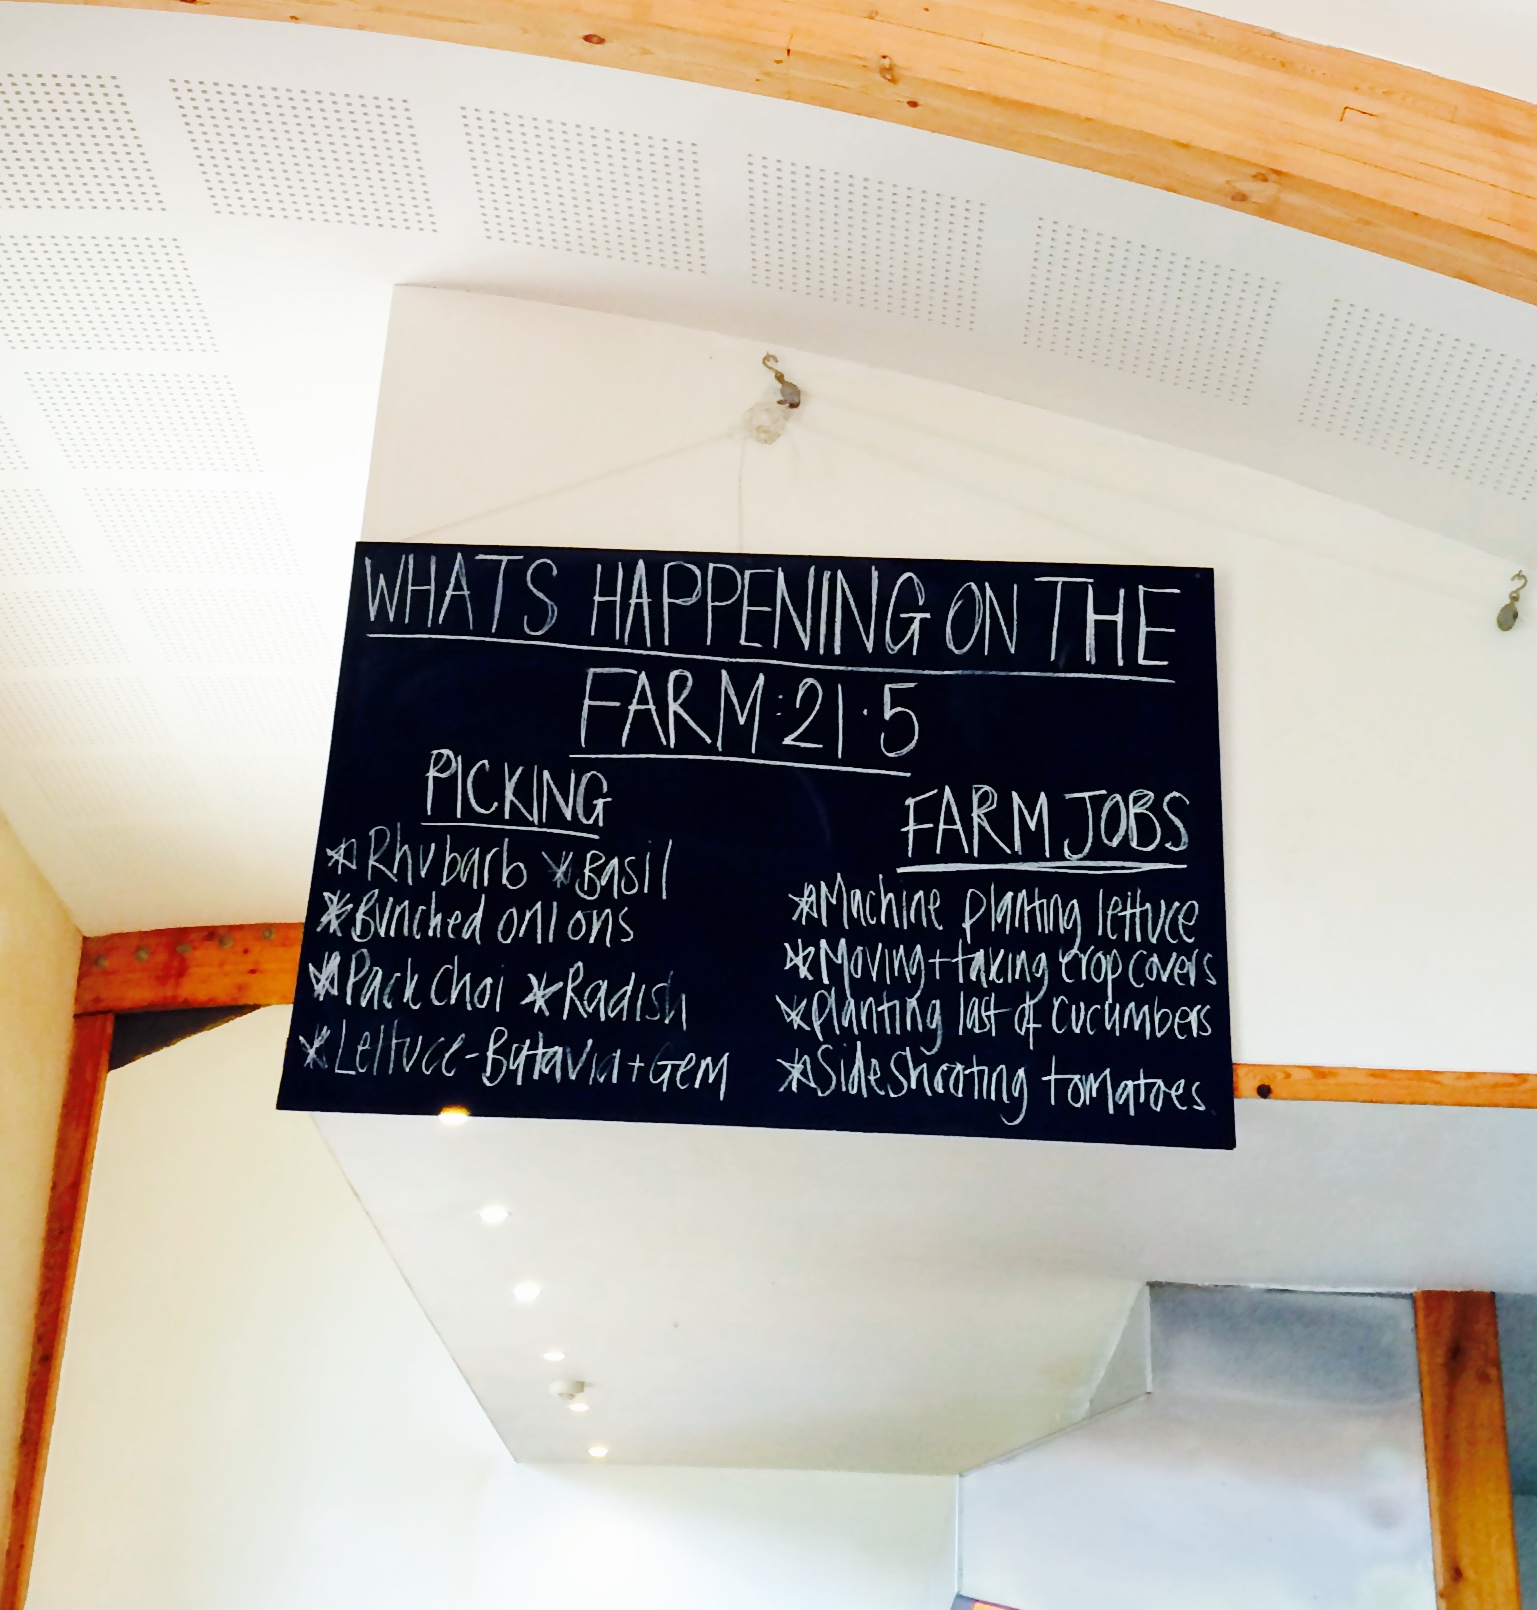 WHATS HAPPENING ON THE
FARM:21.5
PICKING
*Rhubarb *Basil
*Bunched onions
*Pack Choi *Radish
*Lettuce-Batavia+Gem
FARM JOBS
*Machine planting lettuce
*Moving+taking crop covers
*Planting last of cucumbers
*Sideshooting tomatoes.